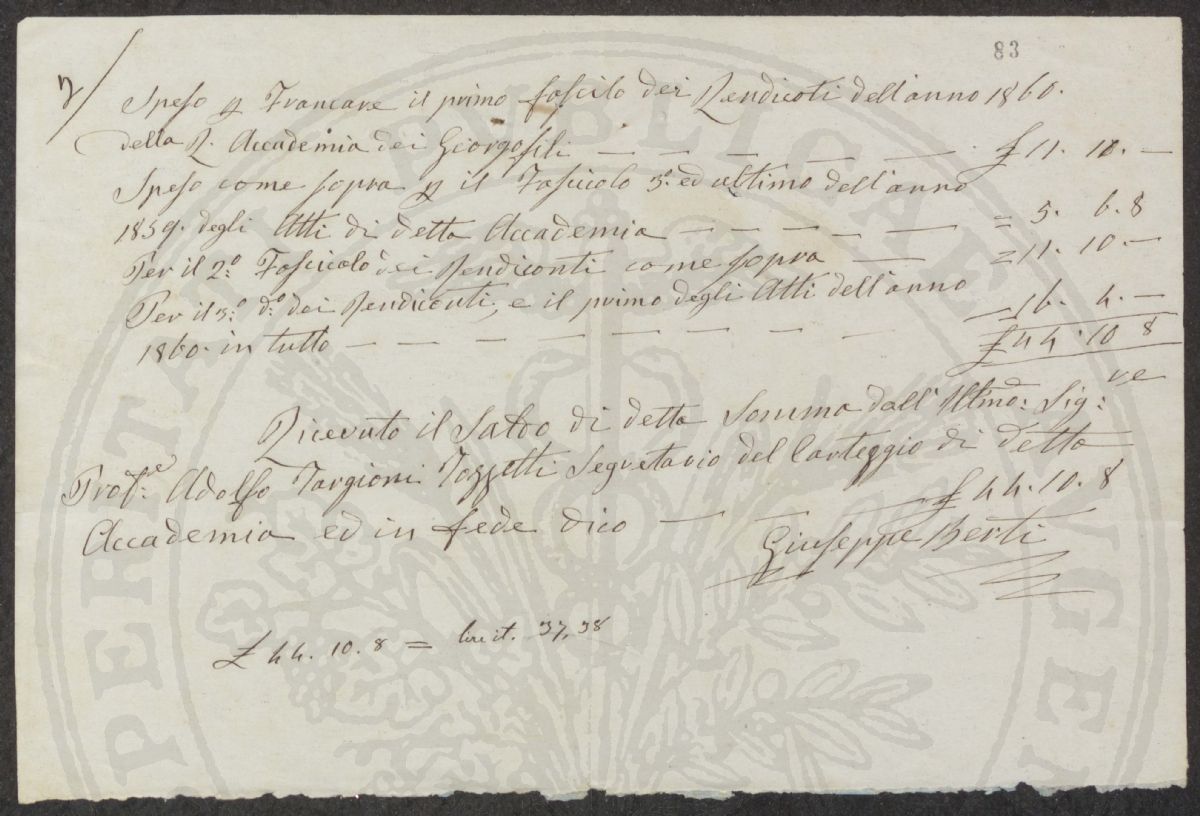 83
Speso p Francare il primo fascilo dei Rendicoti dell'anno 1860.
della R. Accademia dei Giorgofili — — — — — £ 11. 10. —
Speso come sopra p il Fascicolo 3.º ed ultimo dell'anno
1859. degli Atti di detta Accademia — — — — — = 5. 6. 8
Per il 2.º Fascicolo dei Rendiconti come sopra — = 11. 10. —
Per il 3.º d.º dei Rendiconti, e il primo degli Atti dell'anno
1860. in tutto — — — — — — — — 16. 4. —
£ 44. 10 8
Ricevuto il Saldo di detta Somma dall'Illmo: Sig:re
Prof:e Adolfo Targioni Tozzetti Segretario del Carteggio di detta
Accademia ed in fede dico — — £ 44. 10. 8
Giuseppe Berti
£ 44. 10. 8 = lire it. 37,38
PROSPERITATI PUBLICAE AUGENDAE